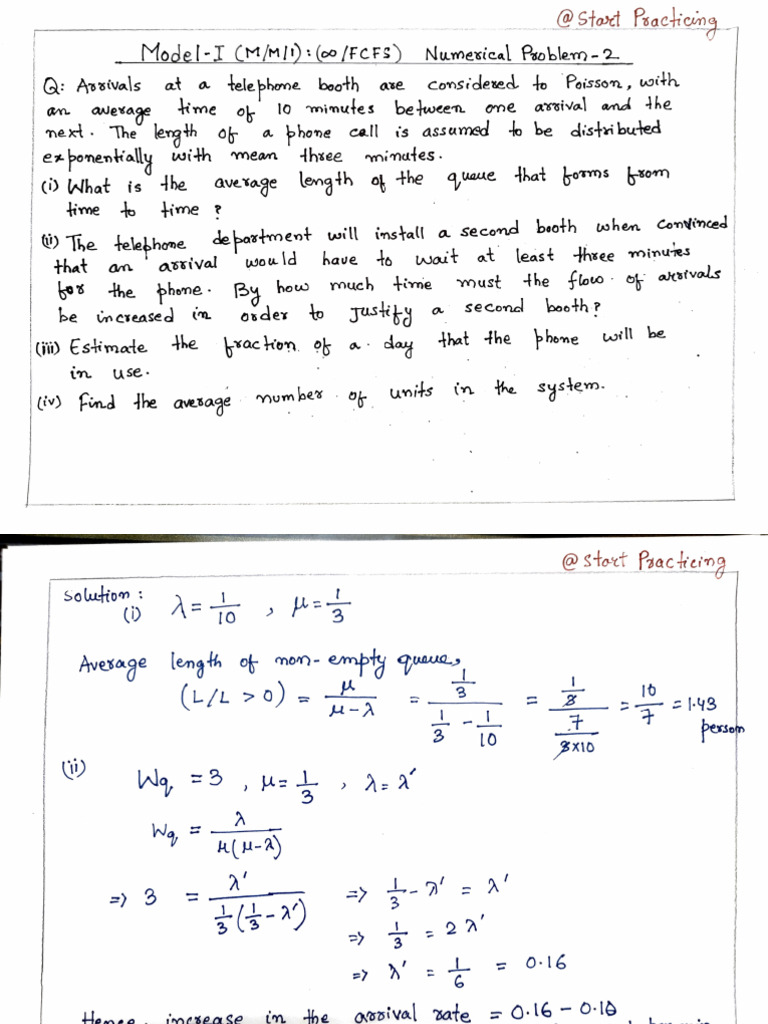 @ Start Practicing
Model-I (M/M/1):(∞/FCFS) Numerical Problem-2
Q: Arrivals at a telephone booth are considered to Poisson, with
an average time of 10 minutes between one arrival and the
next. The length of a phone call is assumed to be distributed
exponentially with mean three minutes.
(i) What is the average length of the queue that forms from
time to time ?
(ii) The telephone department will install a second booth when convinced
that an arrival would have to wait at least three minutes
for the phone. By how much time must the flow of arrivals
be increased in order to justify a second booth?
(iii) Estimate the fraction of a day that the phone will be
in use.
(iv) Find the average number of units in the system.
@ Start Practicing
Solution :
(i) λ = 1/10 , μ = 1/3
Average length of non-empty queue,
(L/L > 0) = μ/(μ-λ) = (1/3)/(1/3 - 1/10) = (1/3)/(7/(3×10)) = 10/7 = 1.43 person
(ii) Wq = 3 , μ = 1/3 , λ = λ'
Wq = λ/(μ(μ-λ))
=> 3 = λ'/(1/3(1/3 - λ')) => 1/3 - λ' = λ'
=> 1/3 = 2λ'
=> λ' = 1/6 = 0.16
Hence, increase in the arrival rate = 0.16 - 0.10